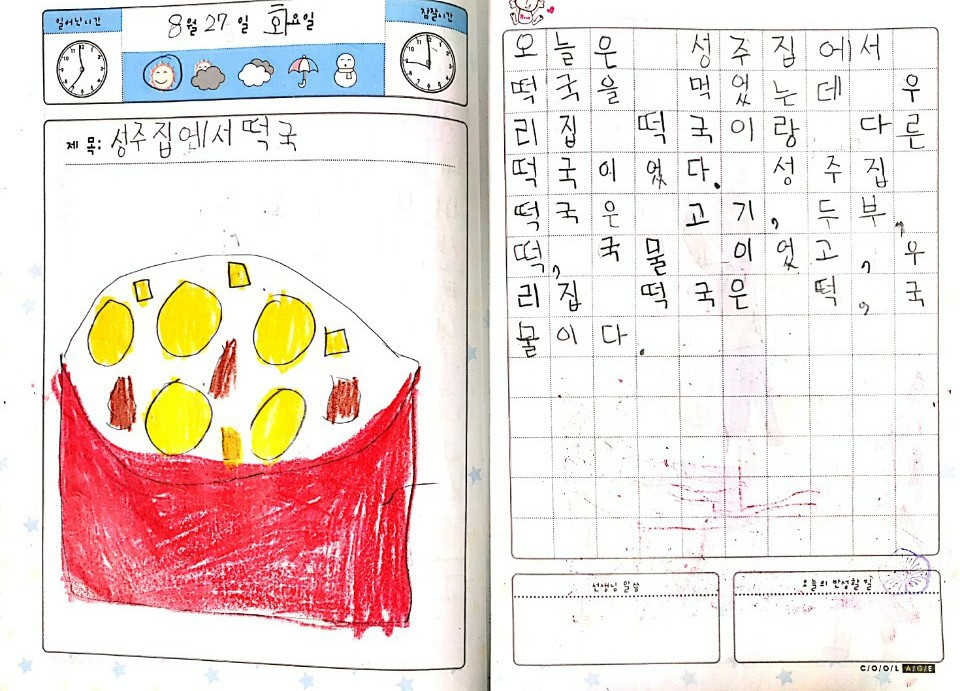 일어난시간
8월 27일 화요일
잠잘시간
제 목: 성주집에서 떡국
오늘은 성주집에서
떡국을 먹었는데 우
리집 떡국이랑 다른
떡국이었다. 성주집
떡국은 고기, 두부,
떡, 국물이었고, 우
리집 떡국은 떡, 국
물이다.
선생님 말씀
오늘의 반성할 일
C/O/O/L A/G/E